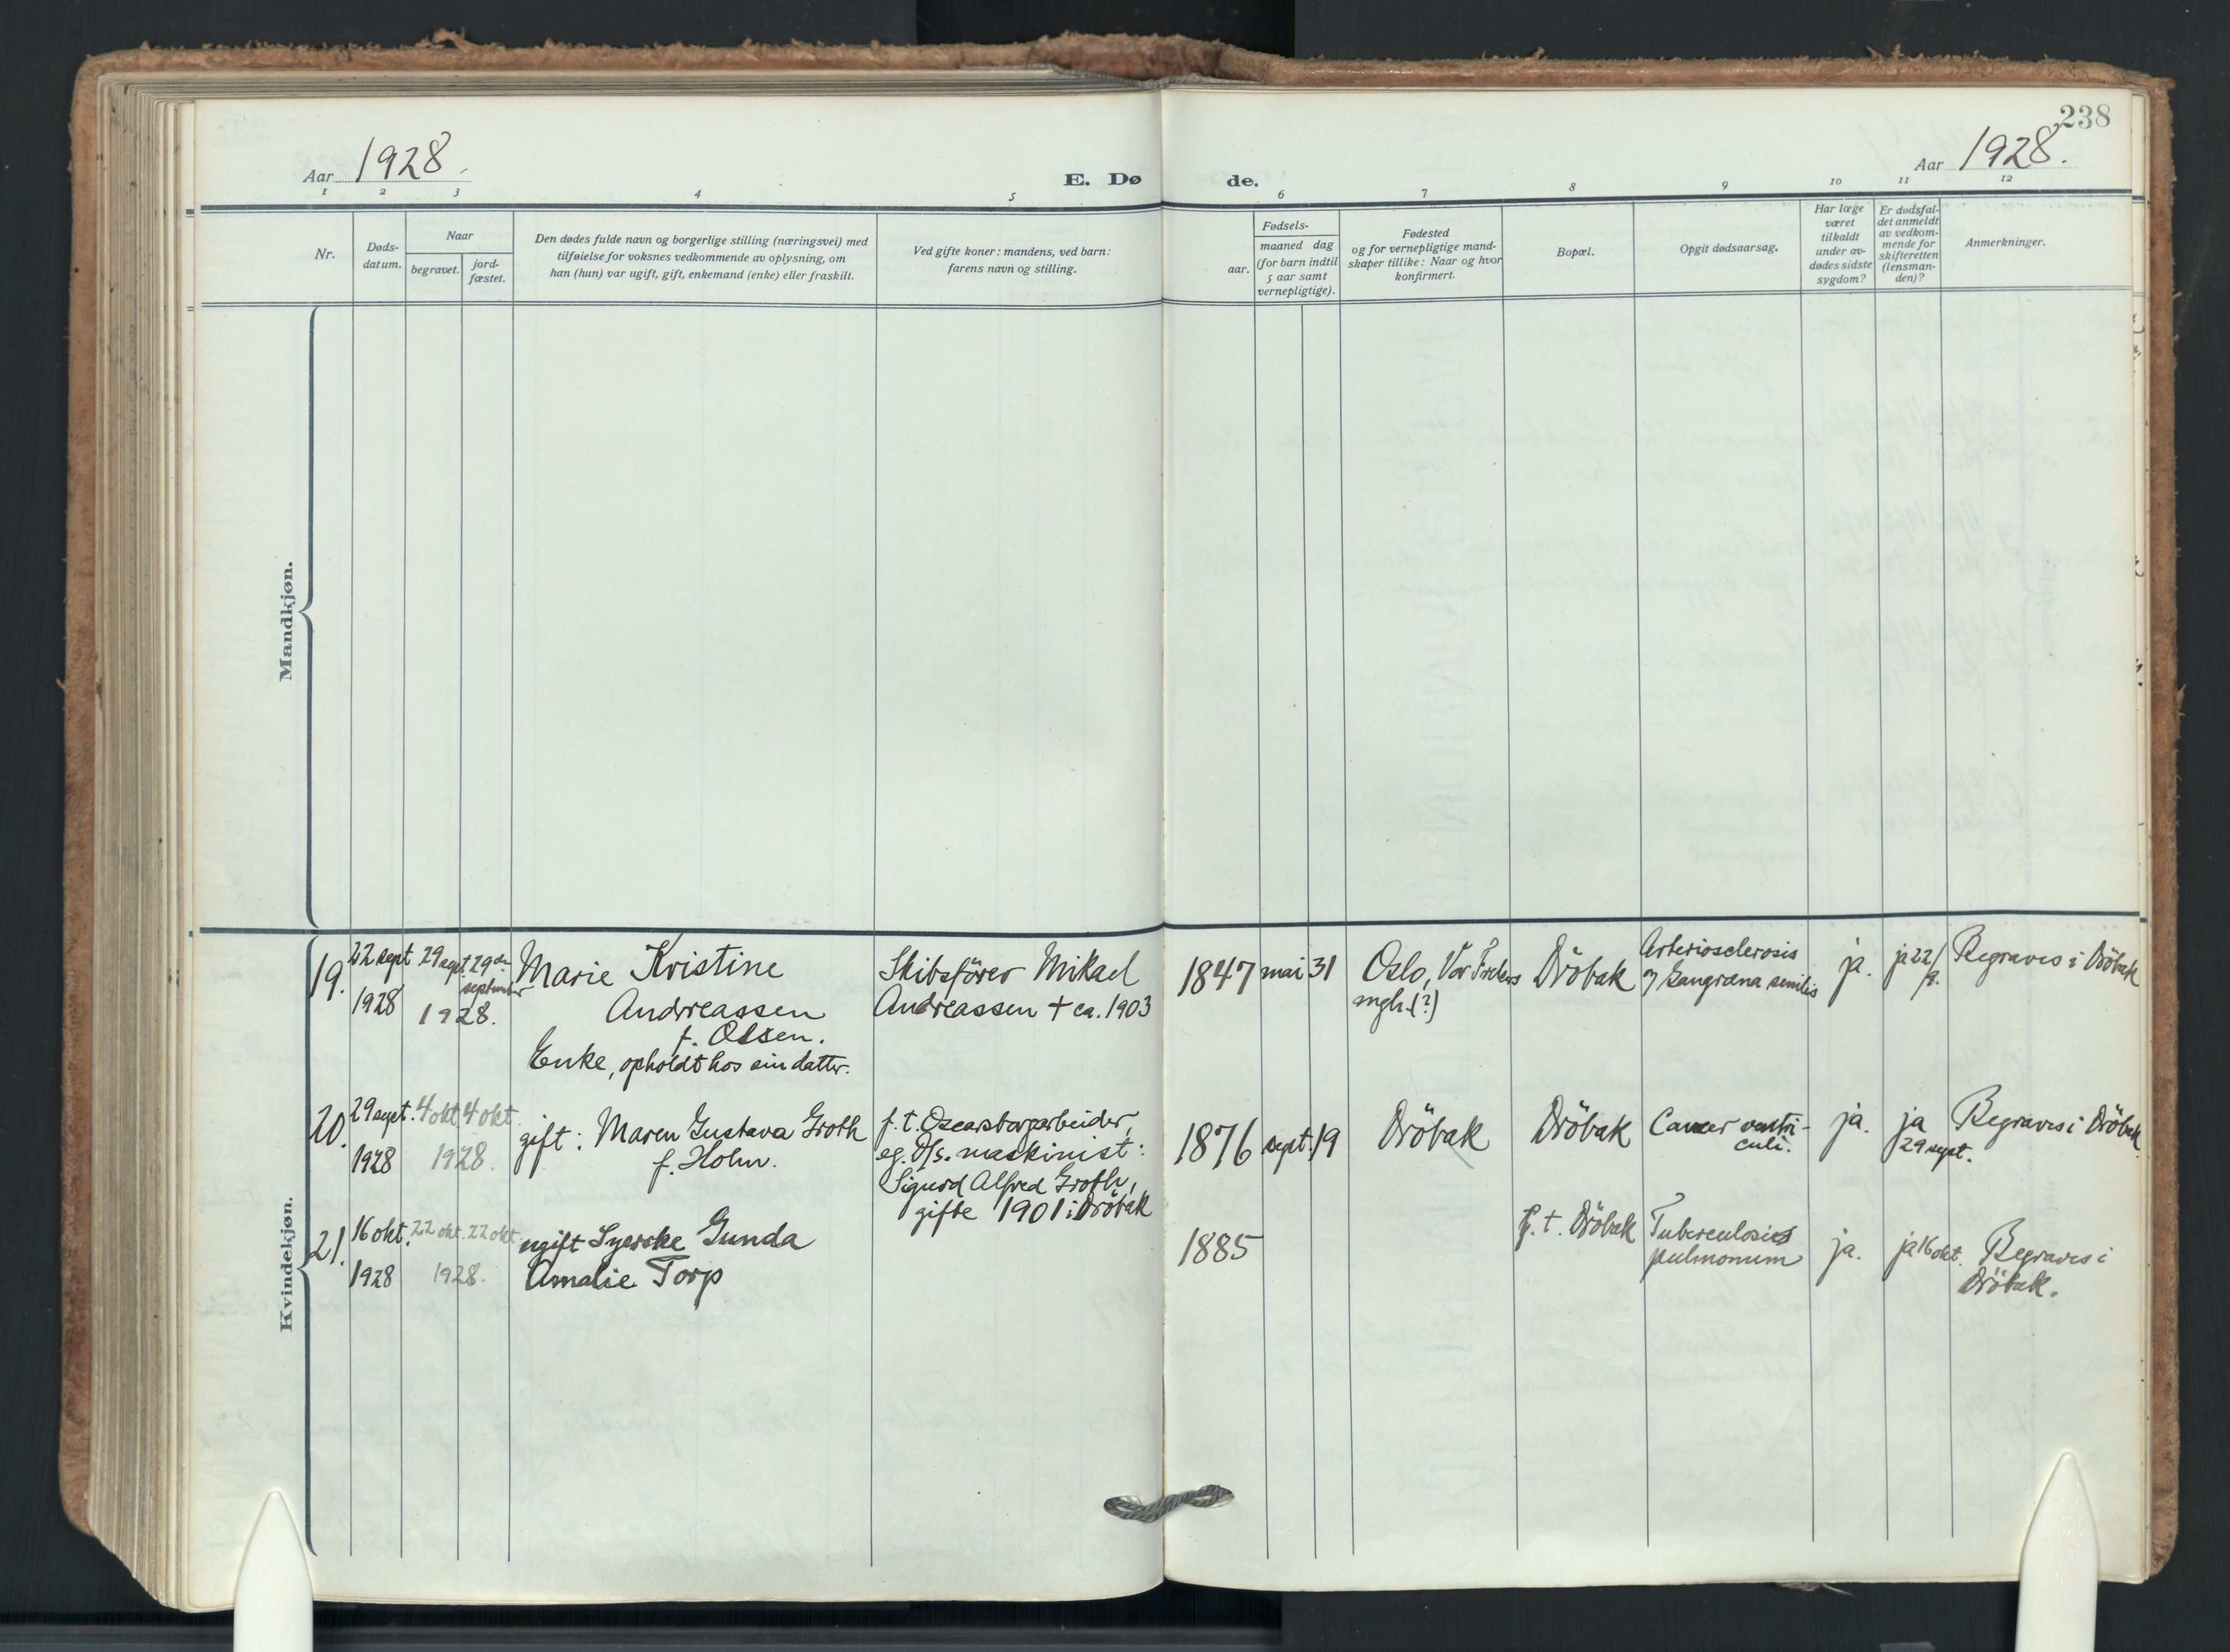 238
Aar 1928.
E. Dø
de.
Aar 1928.
1 2 3 4 5 6 7 8 9 10 11 12
Nr.
Døds-
datum.
Naar
begravet.
jord-
fæstet.
Den dødes fulde navn og borgerlige stilling (næringsvei) med
tilføielse for voksnes vedkommende av oplysning, om
han (hun) var ugift, gift, enkemand (enke) eller fraskilt.
Ved gifte koner: mandens, ved barn:
farens navn og stilling.
Fødsels-
aar.
maaned dag
(for barn indtil
5 aar samt
vernepligtige).
Fødested
og for vernepligtige mand-
skaper tillike: Naar og hvor
konfirmert.
Bopæl.
Opgit dødsaarsag.
Har læge
været
tilkaldt
under av-
dødes sidste
sygdom?
Er dødsfal-
det anmeldt
av vedkom-
mende for
skifteretten
(lensman-
den)?
Anmerkninger.
Mandkjøn.
Kvindekjøn.
19.
22 sept
1928
29 sept.
29de
september
1928.
Marie Kristine
Andreassen
f. Olsen.
Enke, opholdt hos sin datter.
Skibsförer Mikael
Andreassen † ca. 1903
1847
mai
31
Oslo, Vor Frelsers
mgh. (?)
Dröbak
Arteriosclerosis
og Gangræna senilis
ja.
ja 22/
9.
Begraves i Dröbak
20.
29 sept.
1928
4 okt
4 okt.
1928.
gift: Maren Gustava Groth
f. Holm.
f. t. Oscarsborgarbeider,
eg. D/s. maskinist:
Sigurd Alfred Groth,
gifte 1901 i Dröbak
1876
sept.
19
Dröbak
Dröbak
Cancer ventri-
culi.
ja.
ja
29 sept.
Begraves i Dröbak
21.
16 okt.
1928
22 okt.
22 okt
1928.
ugift Syerske Gunda
Amalie Torp
1885
f. t. Dröbak
Tuberculosis
pulmonum
ja.
ja 16 okt.
Begraves i
Dröbak.